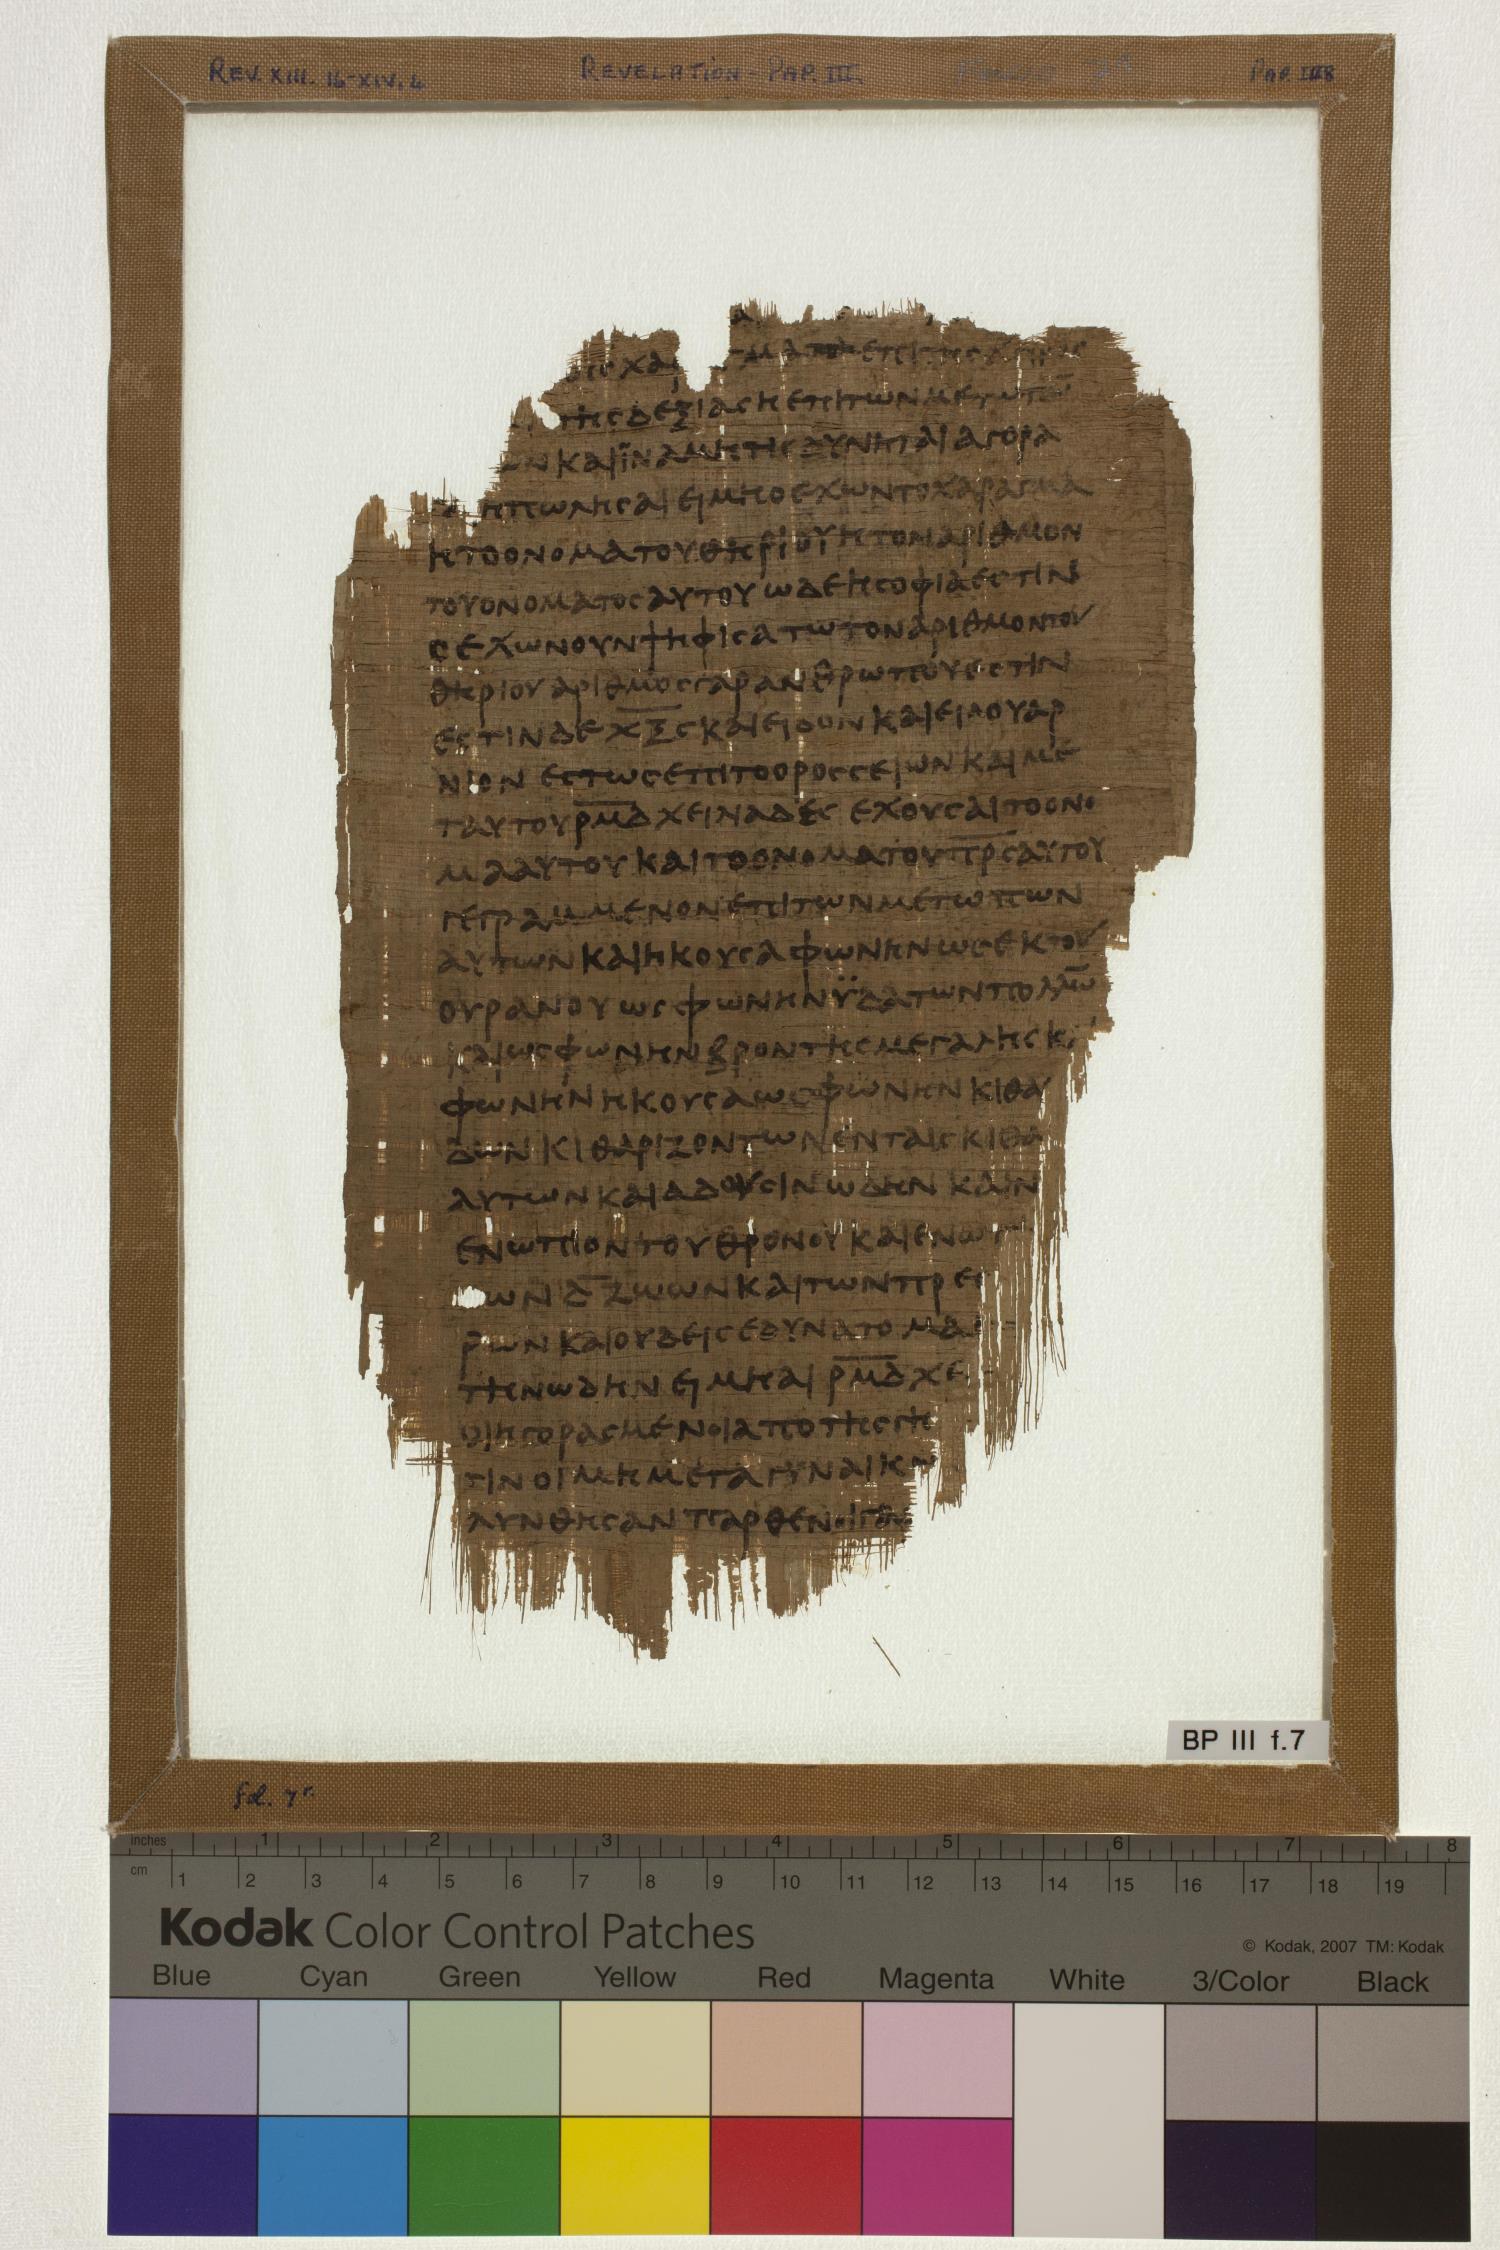 REV. XIII. 16-XIV. 4 REVELATION - PAP. III.
χαρ γματα επι της χειρος
της δεξιας η επι των μετωπω
ων και ϊνα μη τις δυνηται αγορα
η πωλησαι ει μη ο εχων το χαραγμα
η το ονομα του θηριου η τον αριθμον
του ονοματος αυτου ωδε η σοφια εστιν
ο εχων ουν ψηφισατω τον αριθμον του
θηριου αριθμος γαρ ανθρωπου εστιν
εστιν δε χ̅ξ̅ϛ̅ και ειδον και ειδου αρ
νιον εστως επι το ορος σειων και με
τ αυτου ρ̅μ̅δ̅ χειναδες εχουσαι το ονο
μα αυτου και το ονομα του π̅ρ̅ς̅ αυτου
γεγραμμενον επι των μετωπων
αυτων και ηκουσα φωνην ως εκ του
ουρανου ως φωνην ϋδατων πολλων
και ως φωνην βροντης μεγαλης κ
φωνην ηκουσα ως φωνην κιθα
δων κιθαριζοντων εν ταις κιθα
αυτων και αδουσιν ωδην καιν
ενωπιον του θρονου και ενωπ
ων δ̅ ζωων και των πρεσ
ρων και ουδεις εδυνατο μα
την ωδην ει μη αι ρ̅μ̅δ̅ χε
οι ηγορασμενοι απο της γη
τιν οι μη μετα γυναικω
λυνθησαν παρθενοι γαρ
BP III f.7
fol. 7r.
inches 1 2 3 4 5 6 7 8
cm 1 2 3 4 5 6 7 8 9 10 11 12 13 14 15 16 17 18 19
Kodak Color Control Patches
© Kodak, 2007 TM: Kodak
Blue Cyan Green Yellow Red Magenta White 3/Color Black